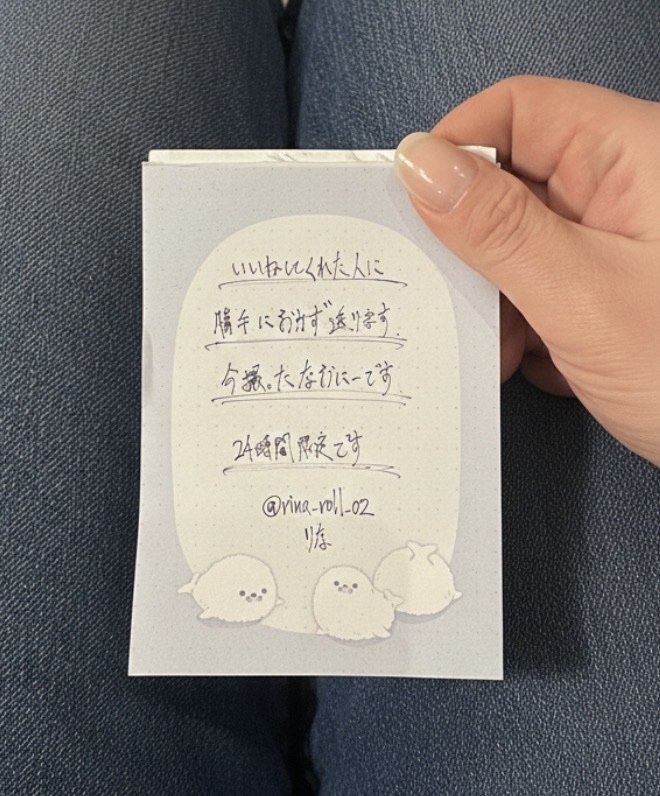 いいねしてくれた人に
勝手におかず送ります
今撮ったなおにーです
24時間限定です
@rina_roll_02
りな